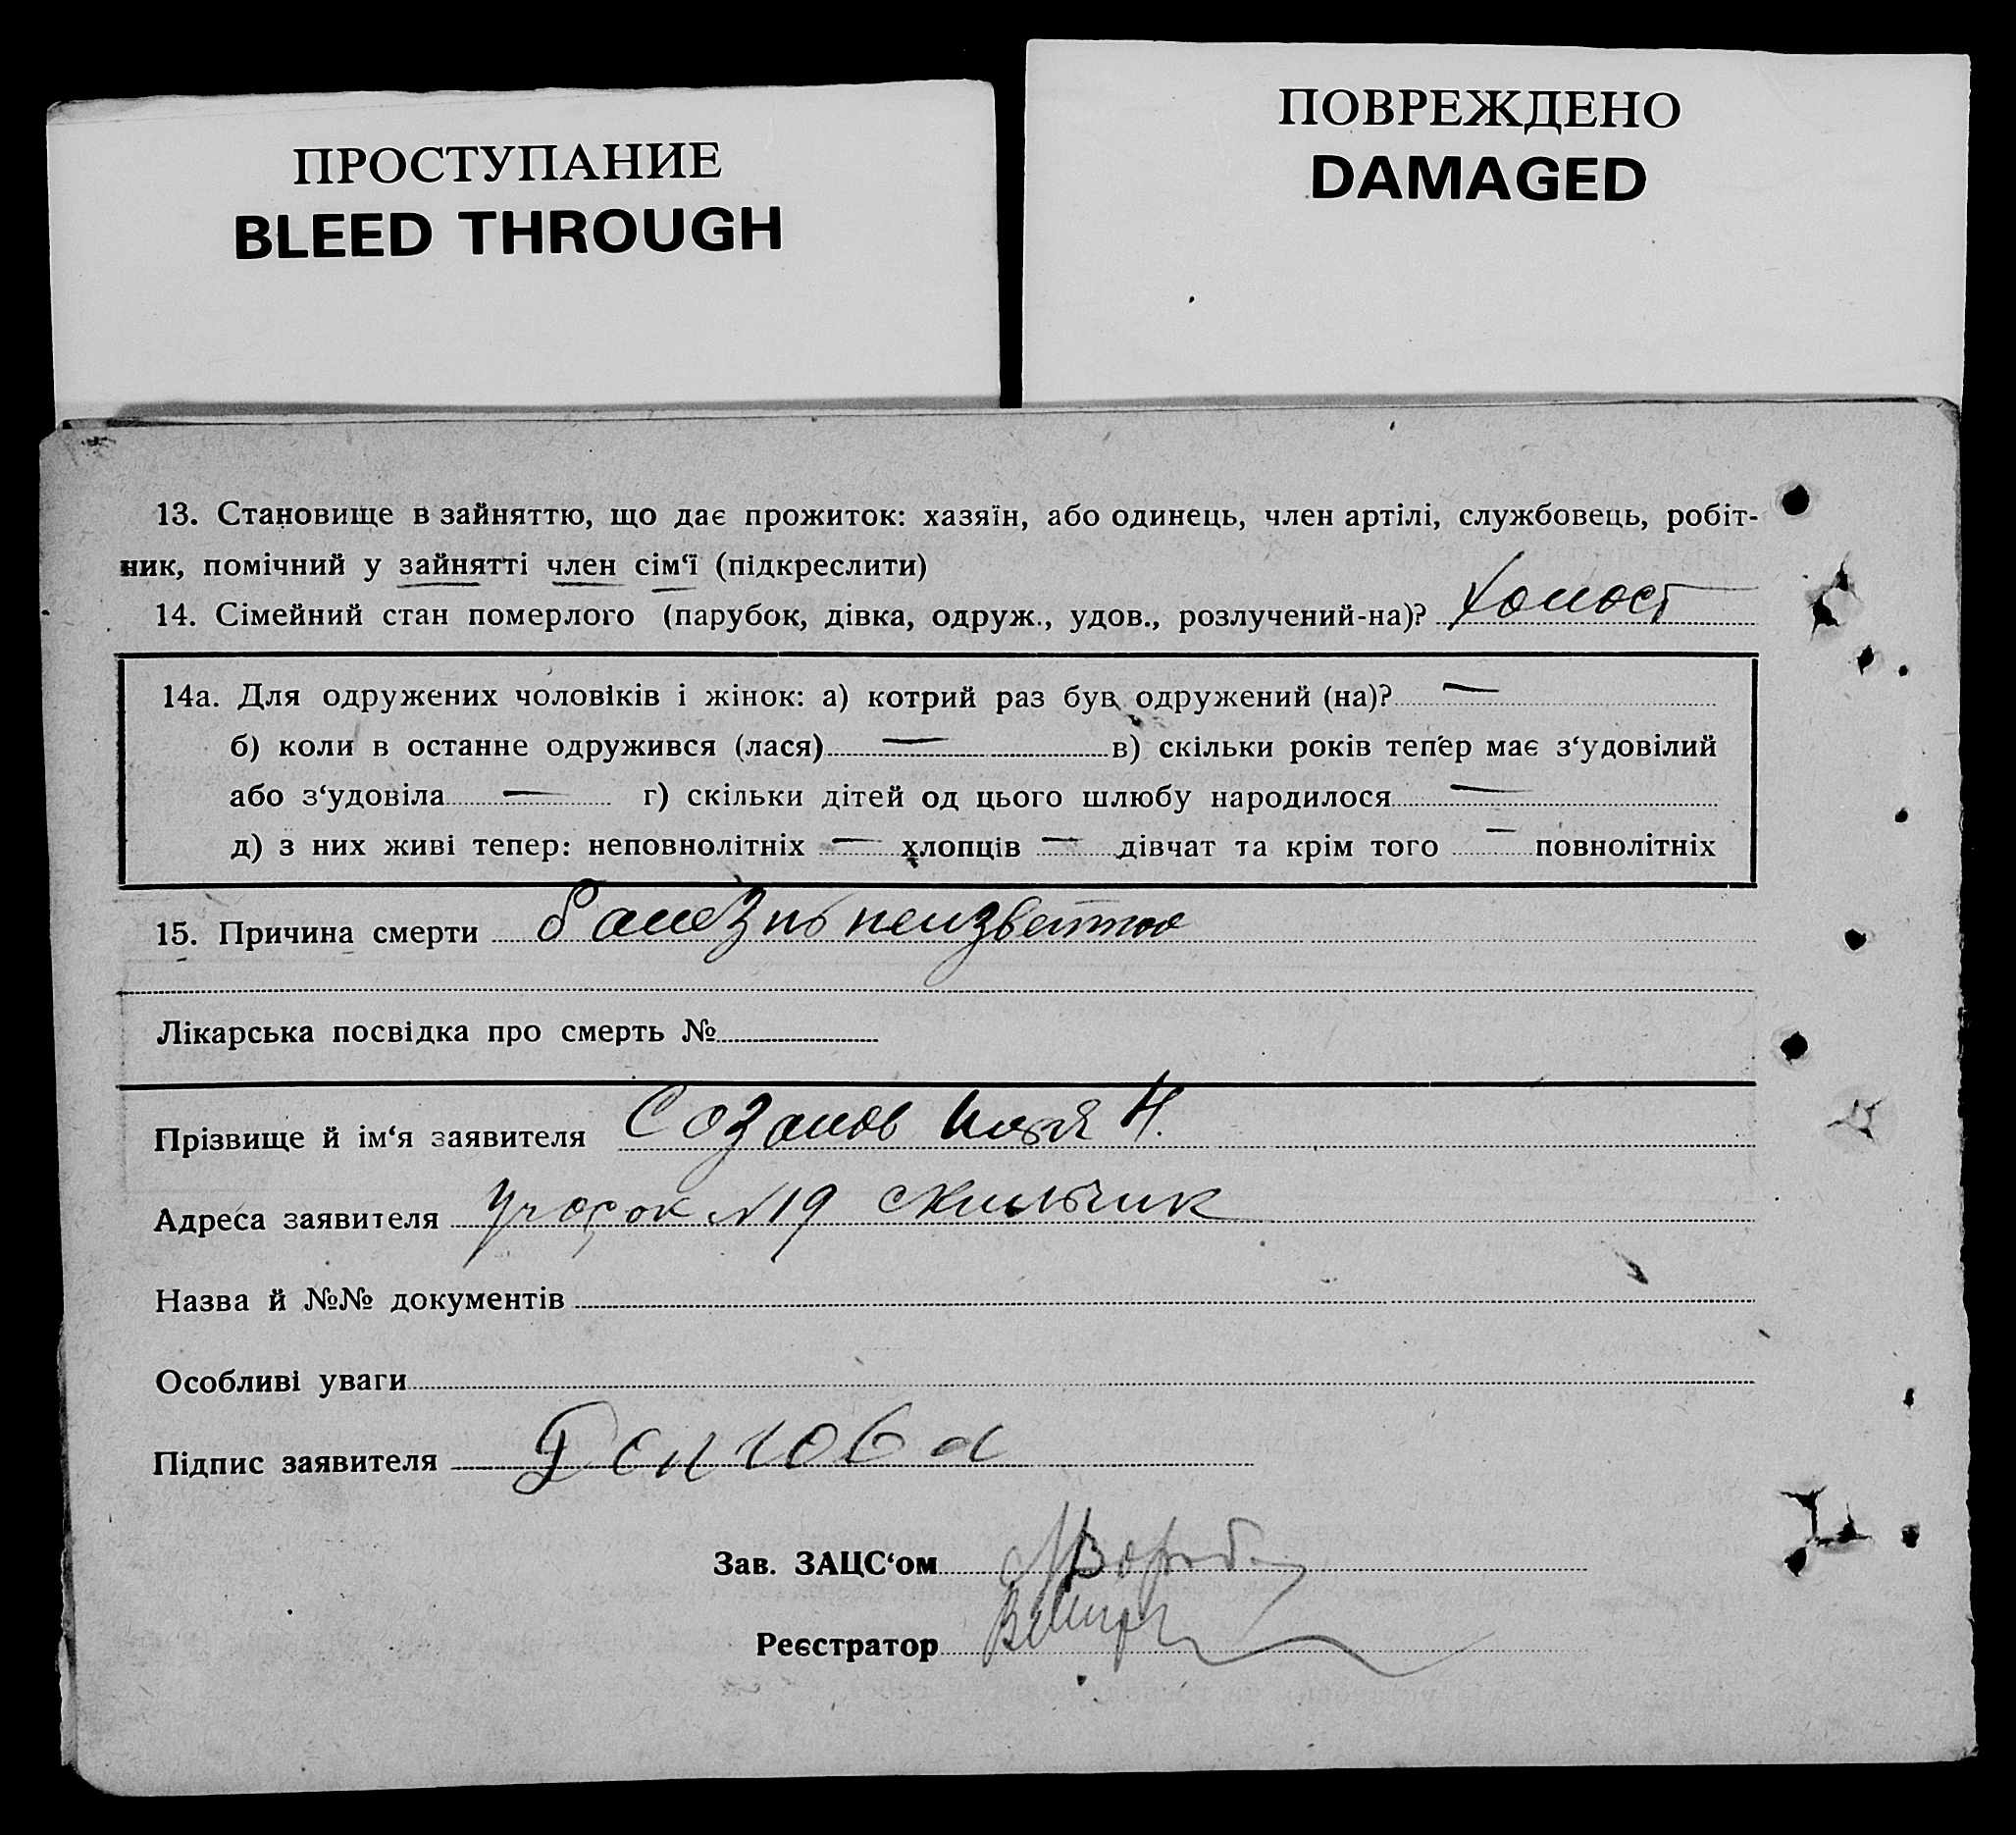 ПРОСТУПАНИЕ
BLEED THROUGH
ПОВРЕЖДЕНО
DAMAGED
13. Становище в зайняттю, що дає прожиток: хазяїн, або одинець, член артілі, службовець, робіт-
ник, помічний у зайнятті член сім‘ї (підкреслити)
14. Сімейний стан померлого (парубок, дівка, одруж., удов., розлучений-на)? холост
14а. Для одружених чоловіків і жінок: а) котрий раз був одружений (на)? —
б) коли в останне одружився (лася) — в) скільки років тепер має з‘удовілий
або з‘удовіла — г) скільки дітей од цього шлюбу народилося —
д) з них живі тепер: неповнолітніх — хлопців — дівчат та крім того — повнолітніх
15. Причина смерти болезнь
Лікарська посвідка про смерть №
Прізвище й ім‘я заявителя Созанов Илья Н.
Адреса заявителя Участок №19
Назва й №№ документів
Особливі уваги
Підпис заявителя
Зав. ЗАЦС‘ом
Реєстратор